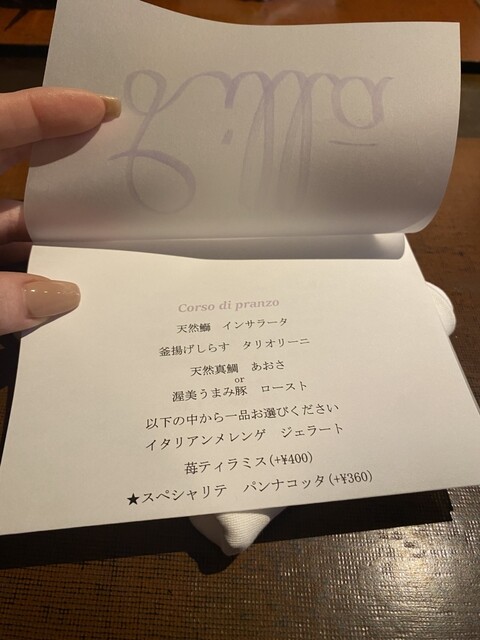 Corso di pranzo
天然鰤 インサラータ
釜揚げしらす タリオリーニ
天然真鯛 あおさ
or
渥美うまみ豚 ロースト
以下の中から一品お選びください
イタリアンメレンゲ ジェラート
苺ティラミス(+¥400)
★スペシャリテ パンナコッタ(+¥360)